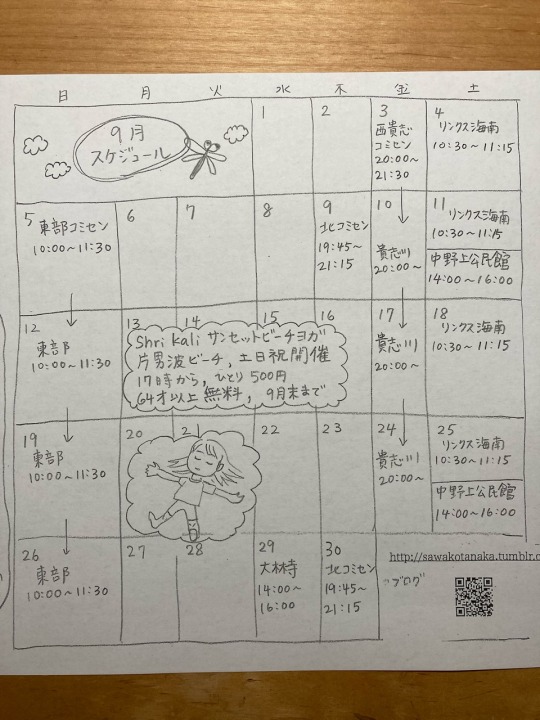 日 月 火 水 木 金 土
9月
スケジュール
1
2
3
西貴志
コミセン
20:00〜
21:30
4
リンクス海南
10:30〜11:15
5
東部コミセン
10:00〜11:30
6
7
8
9
北コミセン
19:45〜
21:15
10
貴志川
20:00〜
11
リンクス海南
10:30〜11:15
中野上公民館
14:00〜16:00
12
東部
10:00〜11:30
13
14
15
16
Shri Kali サンセットビーチヨガ
片男波ビーチ, 土日祝開催
17時から, ひとり500円
64才以上無料, 9月末まで
17
貴志川
20:00〜
18
リンクス海南
10:30〜11:15
19
東部
10:00〜11:30
20
21
22
23
24
貴志川
20:00〜
25
リンクス海南
10:30〜11:15
中野上公民館
14:00〜16:00
26
東部
10:00〜11:30
27
28
29
大林寺
14:00〜
16:00
30
北コミセン
19:45〜
21:15
http://sawakotanaka.tumblr.c
ブログ